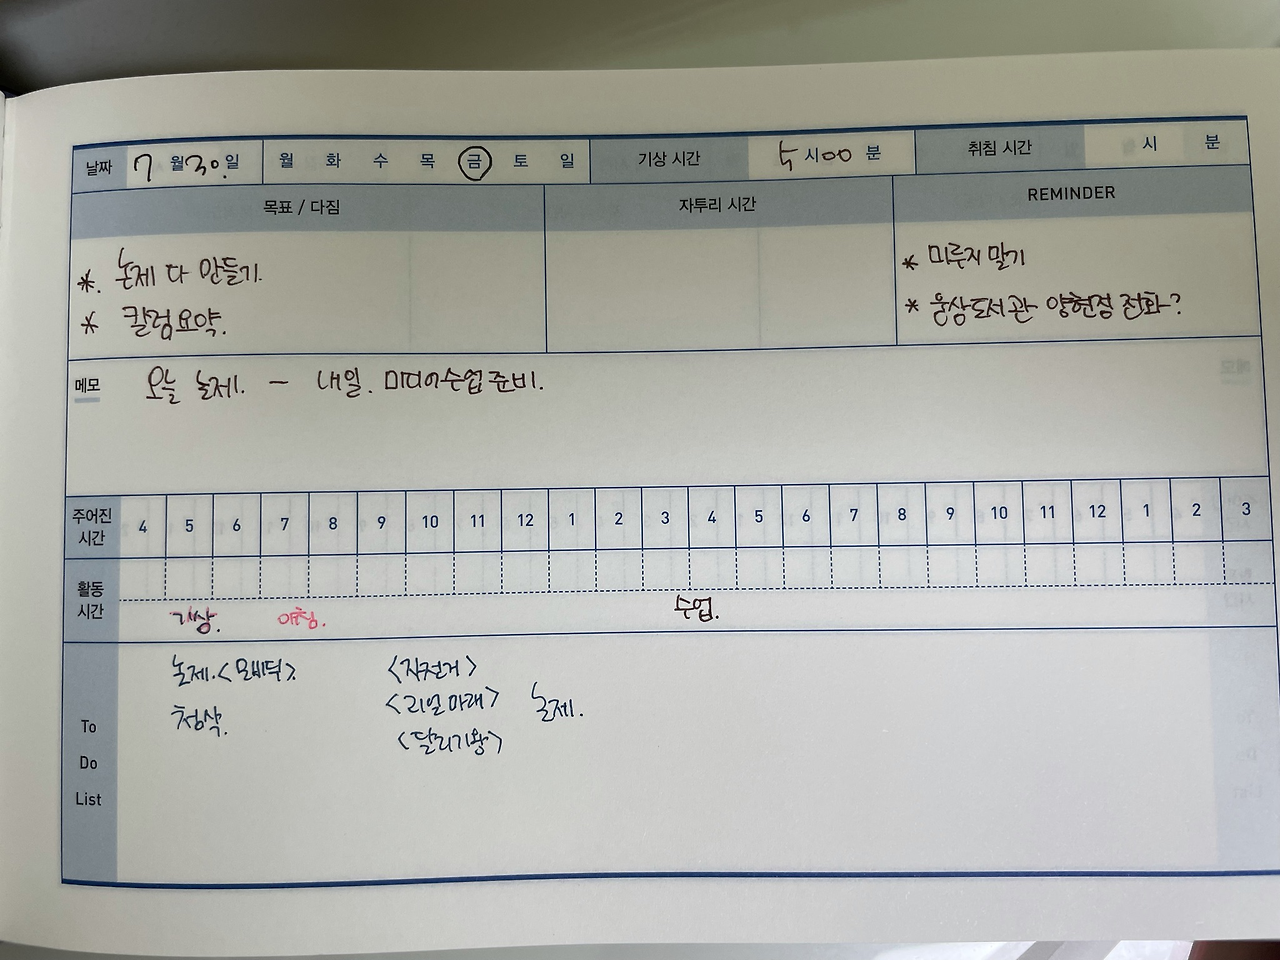 날짜 7월 30.일 월 화 수 목 금 토 일 기상 시간 5시00분 취침 시간 시 분
목표 / 다짐 자투리 시간 REMINDER
*. 논제 다 만들기.
* 칼럼요약.
* 미루지 말기
* 웅상도서관 양현정 전화?
메모 오늘 논제. - 내일. 미디어수업준비.
주어진 시간 4 5 6 7 8 9 10 11 12 1 2 3 4 5 6 7 8 9 10 11 12 1 2 3
활동 시간
기상. 아침. 수업.
To Do List
논제.<모비딕>. <자전거>
첨삭. <리얼 마래> 논제.
<달리기왕>